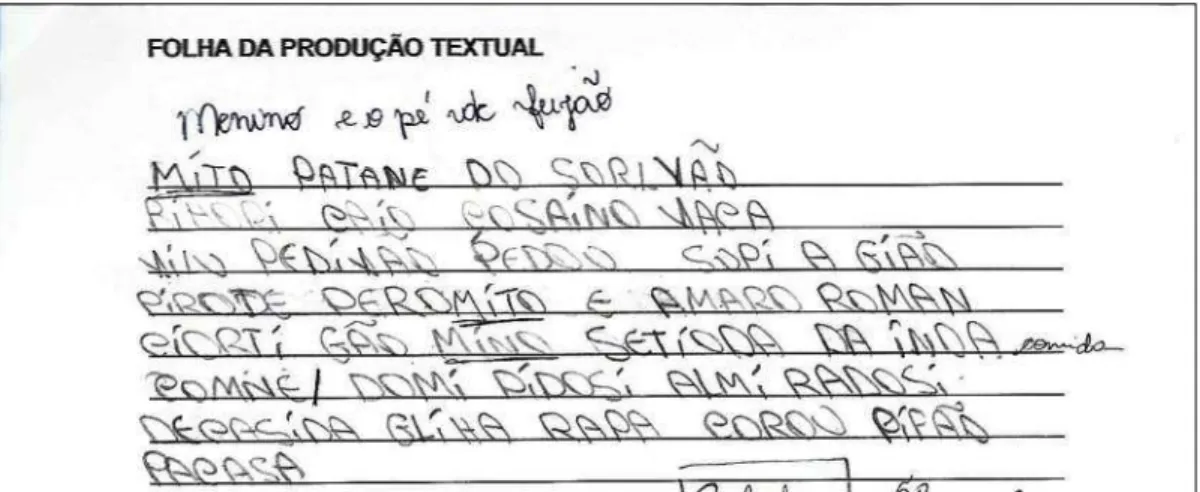 FOLHA DA PRODUÇÃO TEXTUAL
Menino e o pé de feijão
MITO PATANE DO SORIVÃO
CAIO COSAINO VACA
PEDIVÃO PEDOO SOPI A GIÃO
PIROTE DEROMITO E AMARO ROMAN
CIORTI GÃO MINO SETIODA DA INDA comida
COMINE/ DOMI PIDOSI ALMI RADOSI
DECASIDA GLIHA RAPA COROU PIFÃO
PACASA